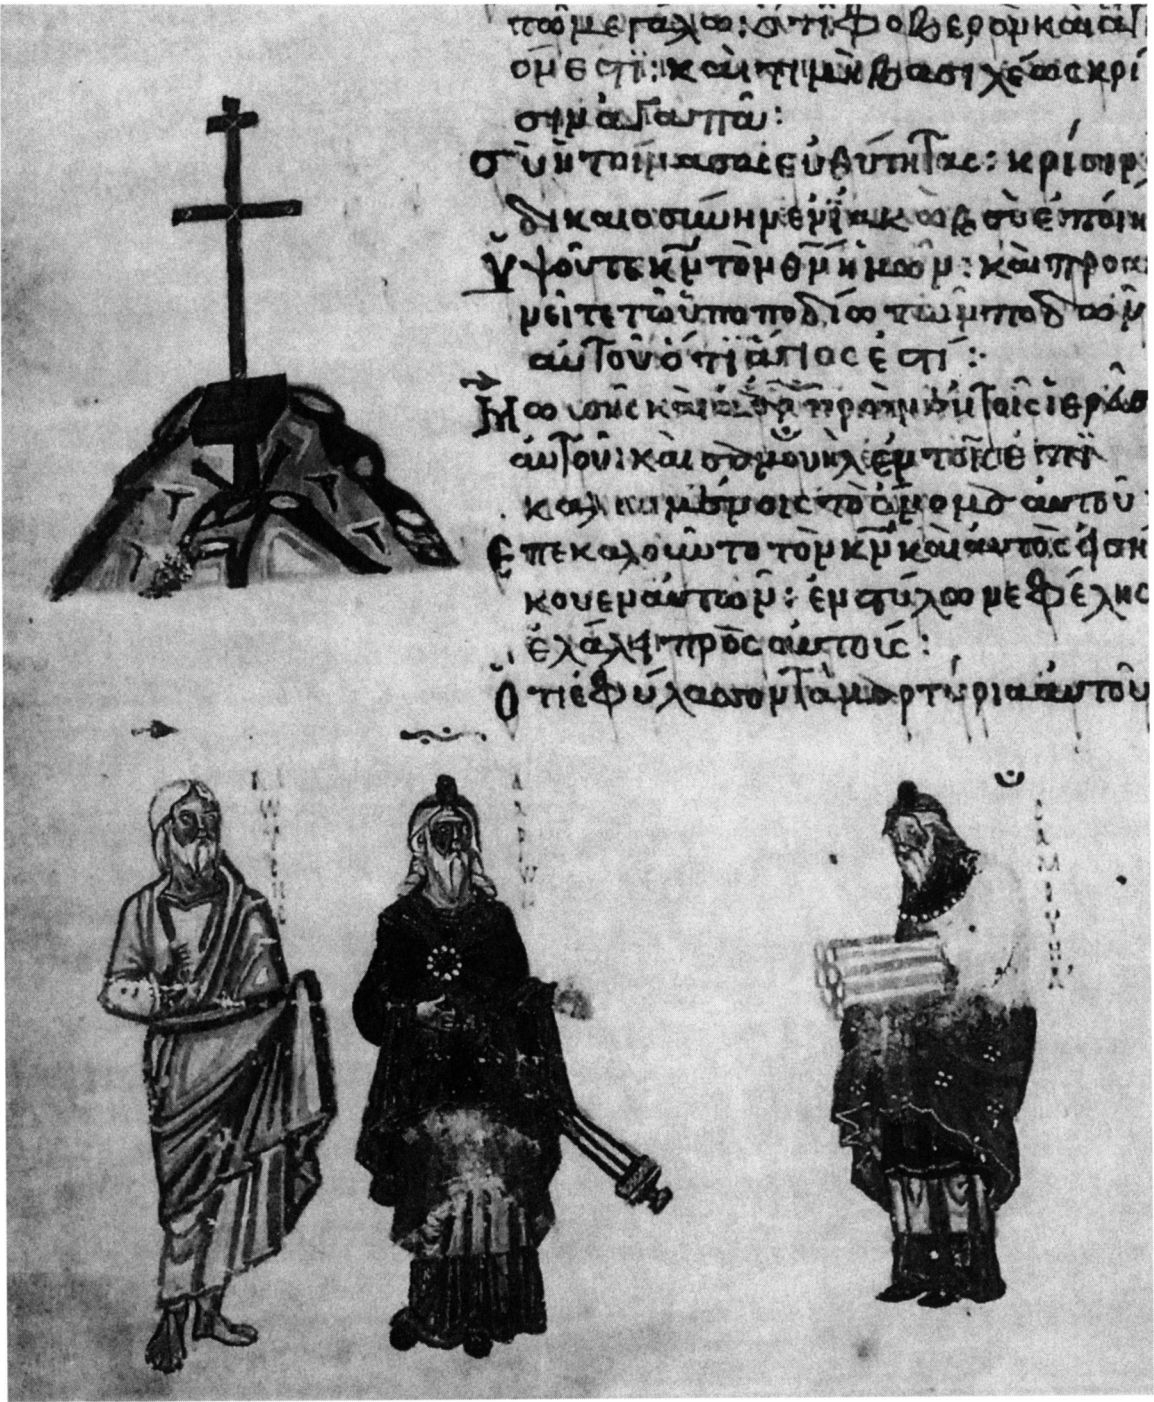 τῶ μεγάλω: ὅτι φοβερὸν καὶ ἅγ
όν εστι: καὶ τιμὴ βασιλέως κρί
σιν ἀγαπᾶ:
σὺ ἡτοίμασας εὐθύτητας: κρίσιν
δικαιοσύνην ἐν ϊακὼβ σὺ ἐποίη
Ὑψοῦτε κ̅ν̅ τὸν θ̅ν̅ ἡμῶν: καὶ προσ
νεῖτε τῶ ὑποποδίω τῶν ποδῶν
αὐτοῦ ὅτι ἅγιος ἐστί:
Μωυσῆς καὶ ἐν τοῖς ἱερεῦσ
αὐτοῦ: καὶ σαμουὴλ ἐν τοῖς ἐπι
καλουμένοις τὸ ὄνομα αὐτοῦ
Ἐπεκαλοῦντο τὸν κ̅ν̅ καὶ αὐτὸς εἰσή
κουεν αὐτῶν: ἐν στύλω νεφέλης
ἐλάλει πρὸς αὐτούς:
Ὅτι ἐφύλασσον τὰ μαρτύρια αὐτοῦ
ΑΑΡΩΝ
ΣΑΜΟΥΗΛ